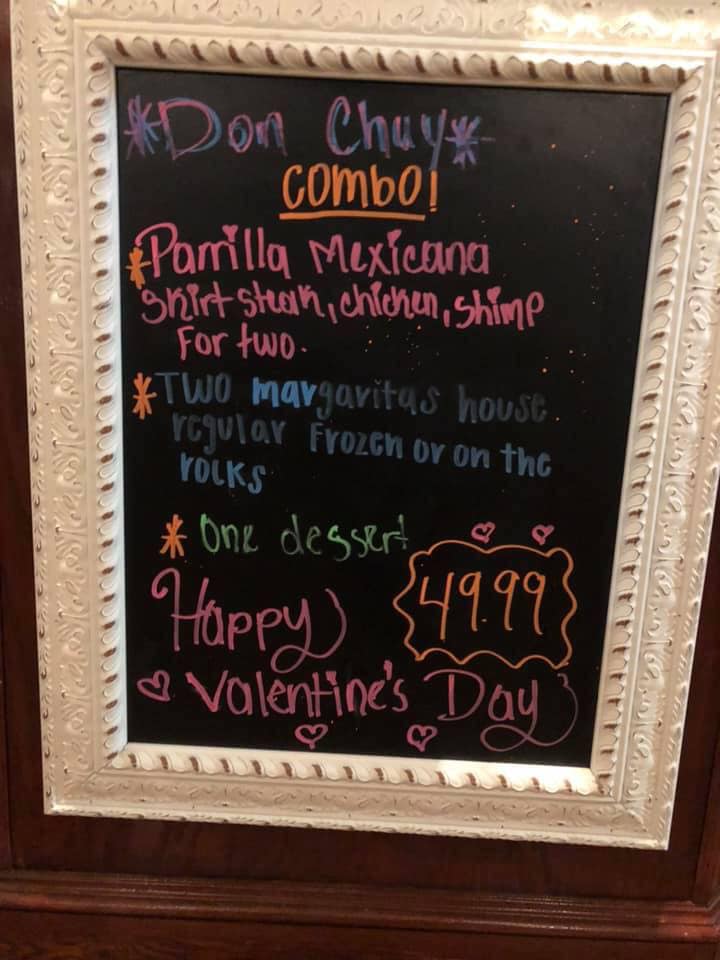 *Don Chuy*
COMBO!
*Parrilla Mexicana
Skirt steak, chicken, Shimp
For two.
*TWO margaritas house
regular Frozen or on the
rocks
* One dessert
49.99
Happy
Valentine's Day